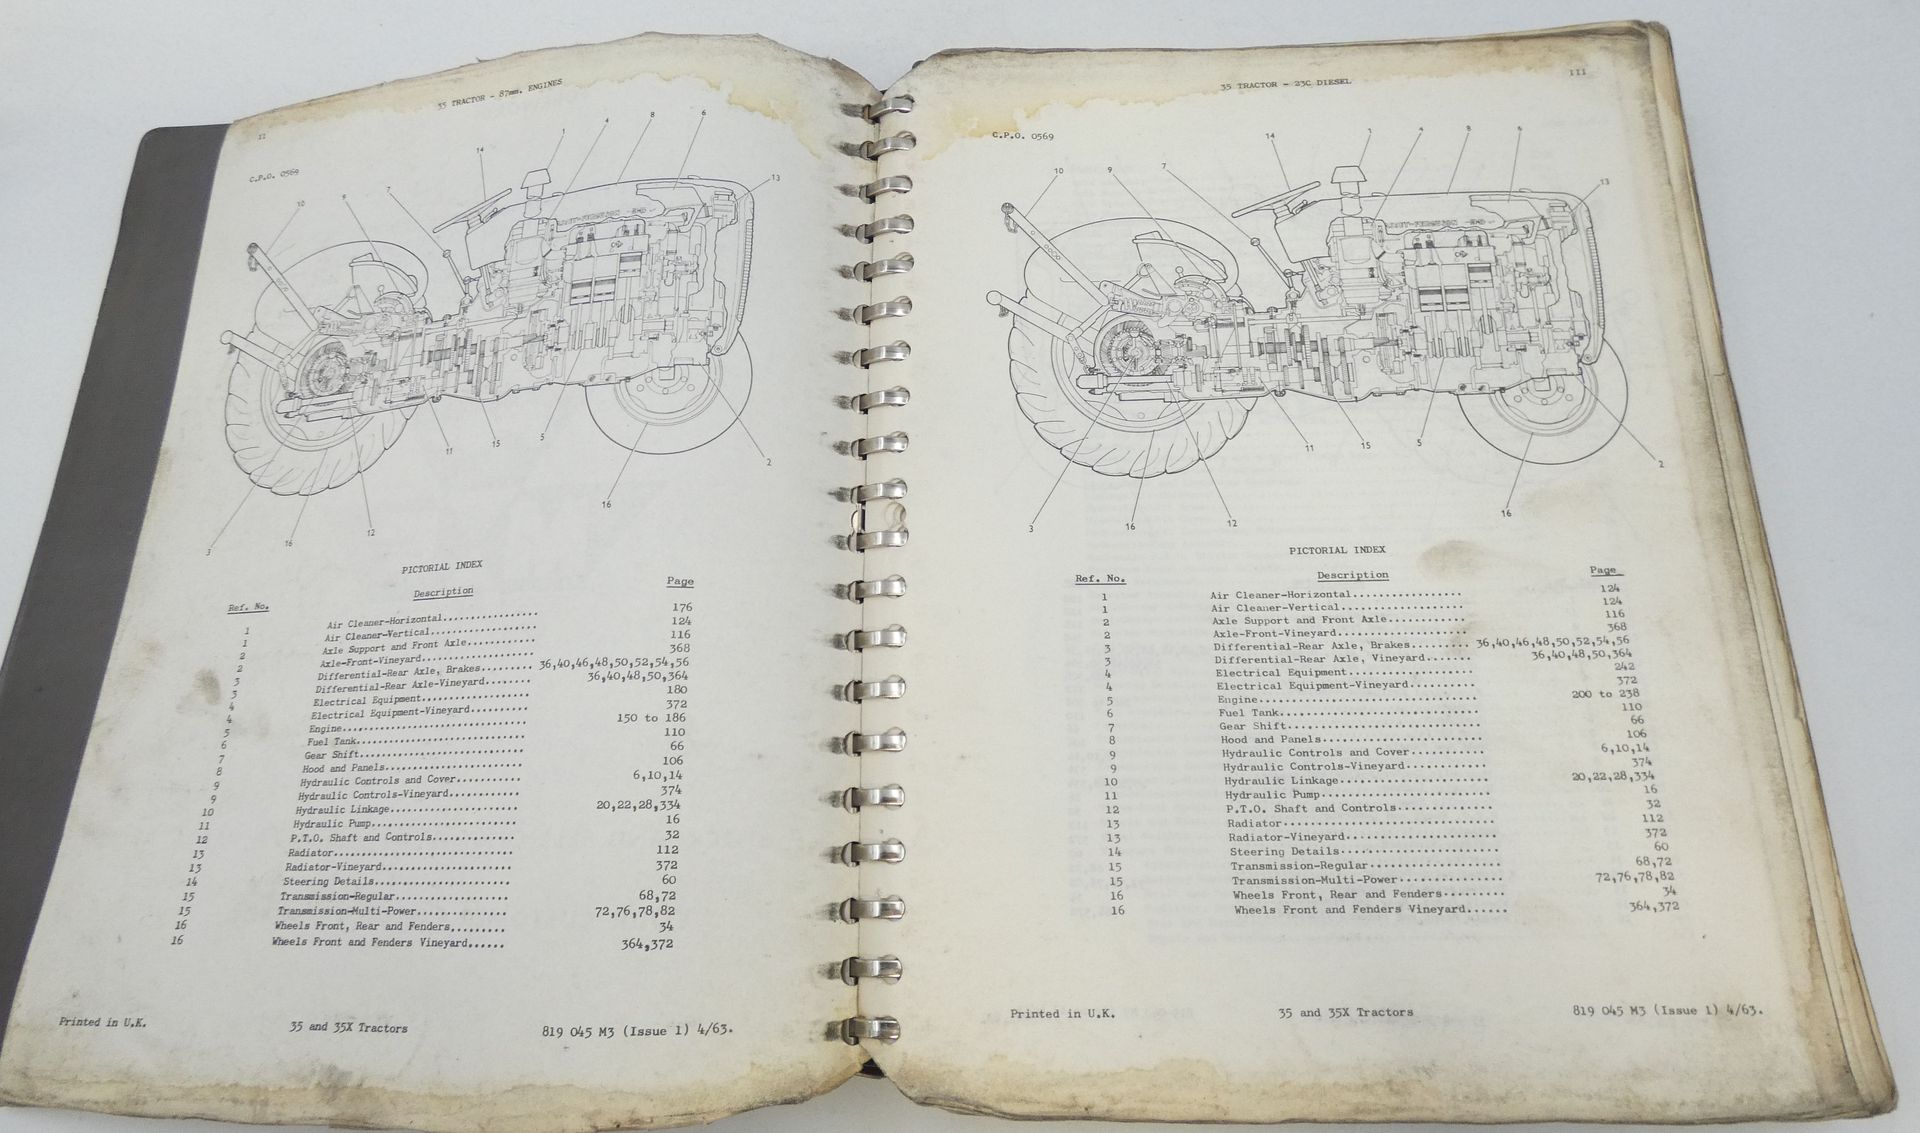 35 TRACTOR - 87mm. ENGINES
II
C.P.O. 0569
14
1
4
8
6
13
7
9
10
11
15
5
2
16
12
16
3
PICTORIAL INDEX
Ref. No. Description Page
1 Air Cleaner-Horizontal 176
1 Air Cleaner-Vertical 124
2 Axle Support and Front Axle 116
2 Axle-Front-Vineyard 368
3 Differential-Rear Axle, Brakes 36,40,46,48,50,52,54,56
3 Differential-Rear Axle-Vineyard 36,40,48,50,364
4 Electrical Equipment 180
4 Electrical Equipment-Vineyard 372
5 Engine 150 to 186
6 Fuel Tank 110
7 Gear Shift 66
8 Hood and Panels 106
9 Hydraulic Controls and Cover 6,10,14
9 Hydraulic Controls-Vineyard 374
10 Hydraulic Linkage 20,22,28,334
11 Hydraulic Pump 16
12 P.T.O. Shaft and Controls 32
13 Radiator 112
13 Radiator-Vineyard 372
14 Steering Details 60
15 Transmission-Regular 68,72
15 Transmission-Multi-Power 72,76,78,82
16 Wheels Front, Rear and Fenders 34
16 Wheels Front and Fenders Vineyard 364,372
Printed in U.K. 35 and 35X Tractors 819 045 M3 (Issue 1) 4/63.
35 TRACTOR - 23C DIESEL
III
C.P.O. 0569
14
1
4
8
6
13
7
9
10
11
15
5
2
16
12
16
3
PICTORIAL INDEX
Ref. No. Description Page
1 Air Cleaner-Horizontal 124
1 Air Cleaner-Vertical 124
2 Axle Support and Front Axle 116
2 Axle-Front-Vineyard 368
3 Differential-Rear Axle, Brakes 36,40,46,48,50,52,54,56
3 Differential-Rear Axle, Vineyard 36,40,48,50,364
4 Electrical Equipment 242
4 Electrical Equipment-Vineyard 372
5 Engine 200 to 238
6 Fuel Tank 110
7 Gear Shift 66
8 Hood and Panels 106
9 Hydraulic Controls and Cover 6,10,14
9 Hydraulic Controls-Vineyard 374
10 Hydraulic Linkage 20,22,28,334
11 Hydraulic Pump 16
12 P.T.O. Shaft and Controls 32
13 Radiator 112
13 Radiator-Vineyard 372
14 Steering Details 60
15 Transmission-Regular 68,72
15 Transmission-Multi-Power 72,76,78,82
16 Wheels Front, Rear and Fenders 34
16 Wheels Front and Fenders Vineyard 364,372
Printed in U.K. 35 and 35X Tractors 819 045 M3 (Issue 1) 4/63.